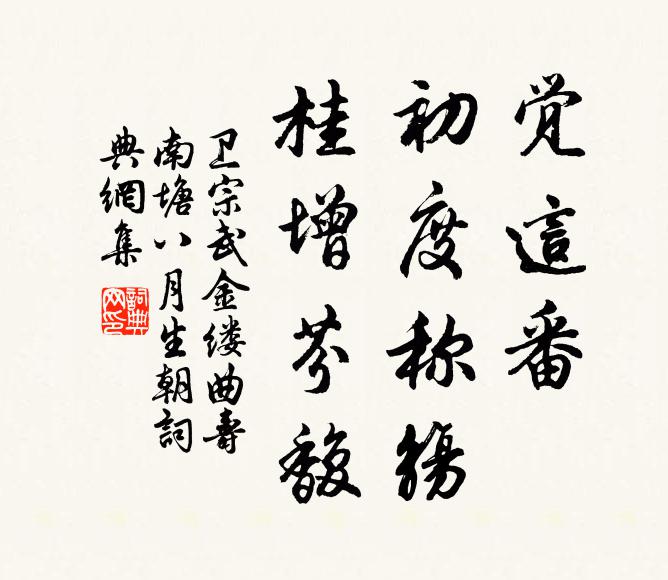 觉這番
初度称觞
桂增芬馥
卫宗武金缕曲壽
南塘八月生朝詞
典網集
詞典网印